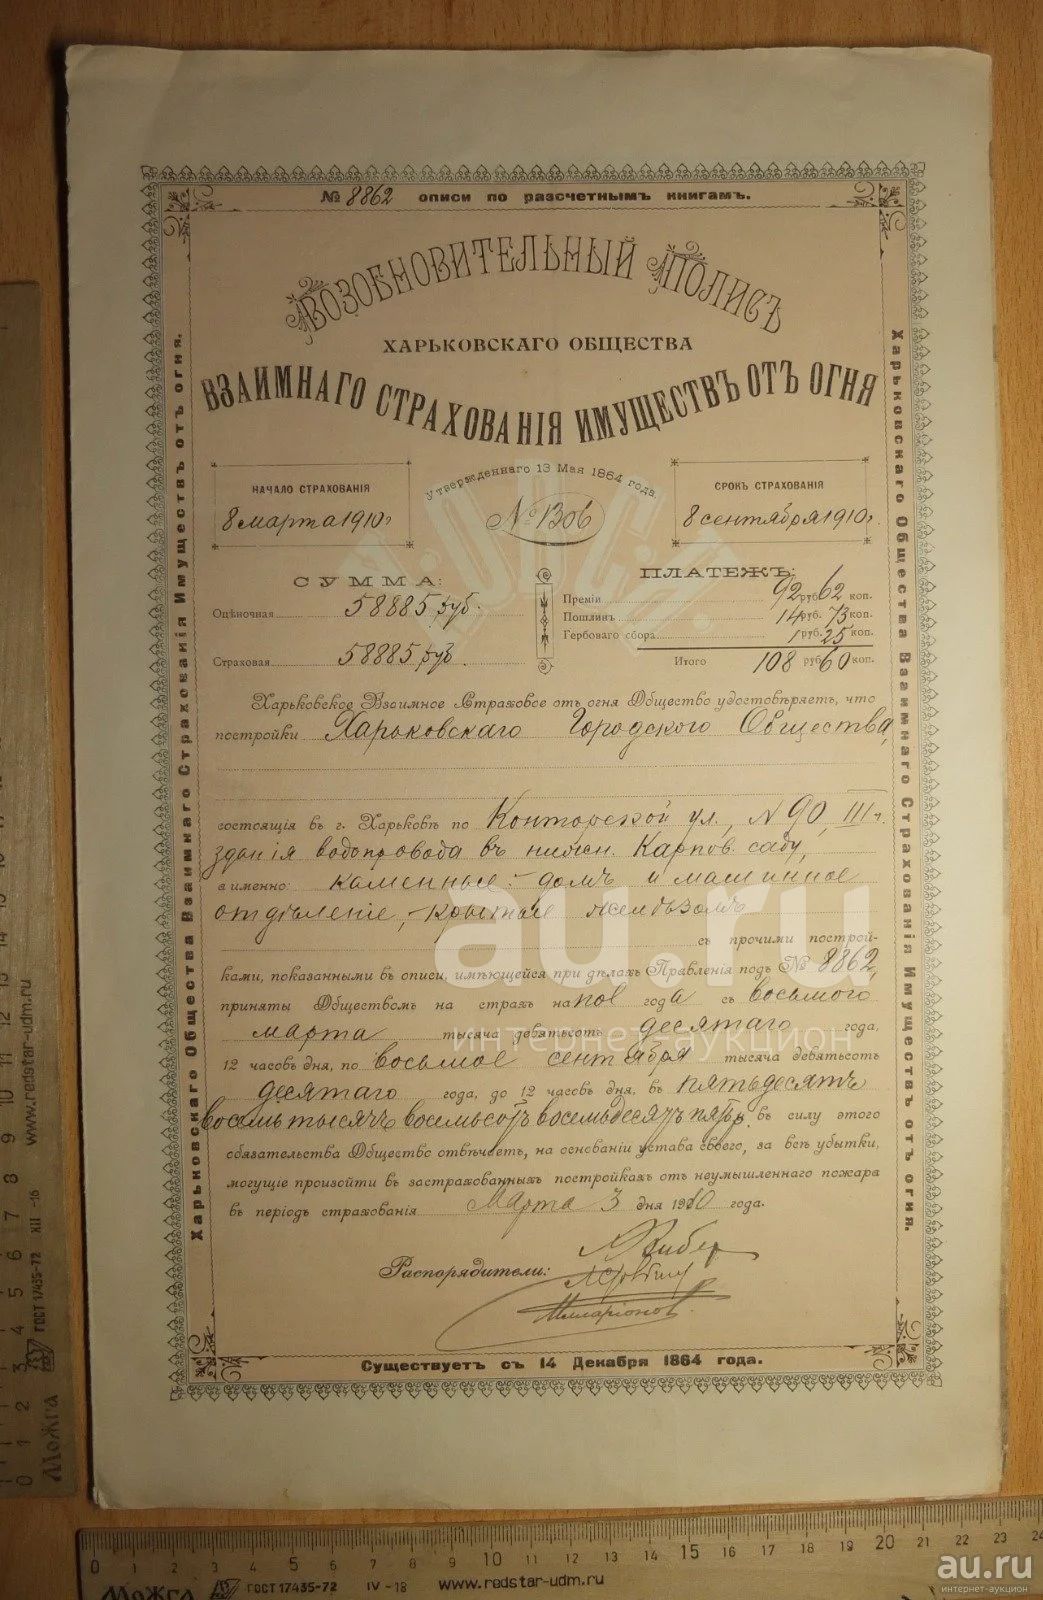 № 8862 описи по разсчетнымъ книгамъ.
ВОЗОБНОВИТЕЛЬНЫЙ ПОЛИСЪ
ХАРЬКОВСКАГО ОБЩЕСТВА
ВЗАИМНАГО СТРАХОВАНІЯ ИМУЩЕСТВЪ ОТЪ ОГНЯ
Утвержденнаго 13 Мая 1864 года.
НАЧАЛО СТРАХОВАНІЯ
8 марта 1910 г
№ 1306
СРОКЪ СТРАХОВАНІЯ
8 сентября 1910 г.
СУММА:
Оцѣночная 58885 руб.
Страховая 58885 руб
ПЛАТЕЖЪ:
Преміи 92 руб 62 коп.
Пошлинъ 14 руб. 73 коп.
Гербоваго сбора 1 руб. 25 коп.
Итого 108 руб 60 коп.
Харьковское Взаимное Страховое отъ огня Общество удостовѣряетъ, что
постройки Харьковскаго Городского Общества,
состоящія въ г. Харьковѣ по Конторской ул., № 90, III ч.
зданія водопровода въ нижн. Карпов. саду,
а именно: каменные:- домъ и машинное
отдѣленіе, - крытые желѣзомъ
съ прочими построй-
ками, показанными въ описи, имѣющейся при дѣлахъ Правленія подъ № 8862,
приняты Обществомъ на страхъ на пол года съ восьмого
марта тысяча девятьсотъ десятаго года,
12 часовъ дня, по восьмое сентября тысяча девятьсотъ
десятаго года, до 12 часовъ дня, въ пятьдесятъ
восемь тысячъ восемьсотъ восемьдесятъ пять р. въ силу этого
обязательства Общество отвѣчаетъ, на основаніи устава своего, за всѣ убытки,
могущіе произойти въ застрахованныхъ постройкахъ отъ неумышленнаго пожара
въ періодъ страхованія Марта 3 дня 1910 года.
Распорядители:
Илларіоновъ
Существуетъ съ 14 Декабря 1864 года.
Харьковскаго Общества Взаимнаго Страхованія Имуществъ отъ огня.
Харьковскаго Общества Взаимнаго Страхованія Имуществъ отъ огня.
au.ru
интернет-аукцион
www.redstar-udm.ru
ГОСТ 17435-72 XII -16
Можга
0 1 2 3 4 5 6 7 8 9 10 11 12 13 14 15
0 1 2 3 4 5 6 7 8 9 10 11 12 13 14 15 16 17 18 19 20 21 22 23 24
Можга ГОСТ 17435-72 IV -18 www.redstar-udm.ru
au.ru
интернет-аукцион